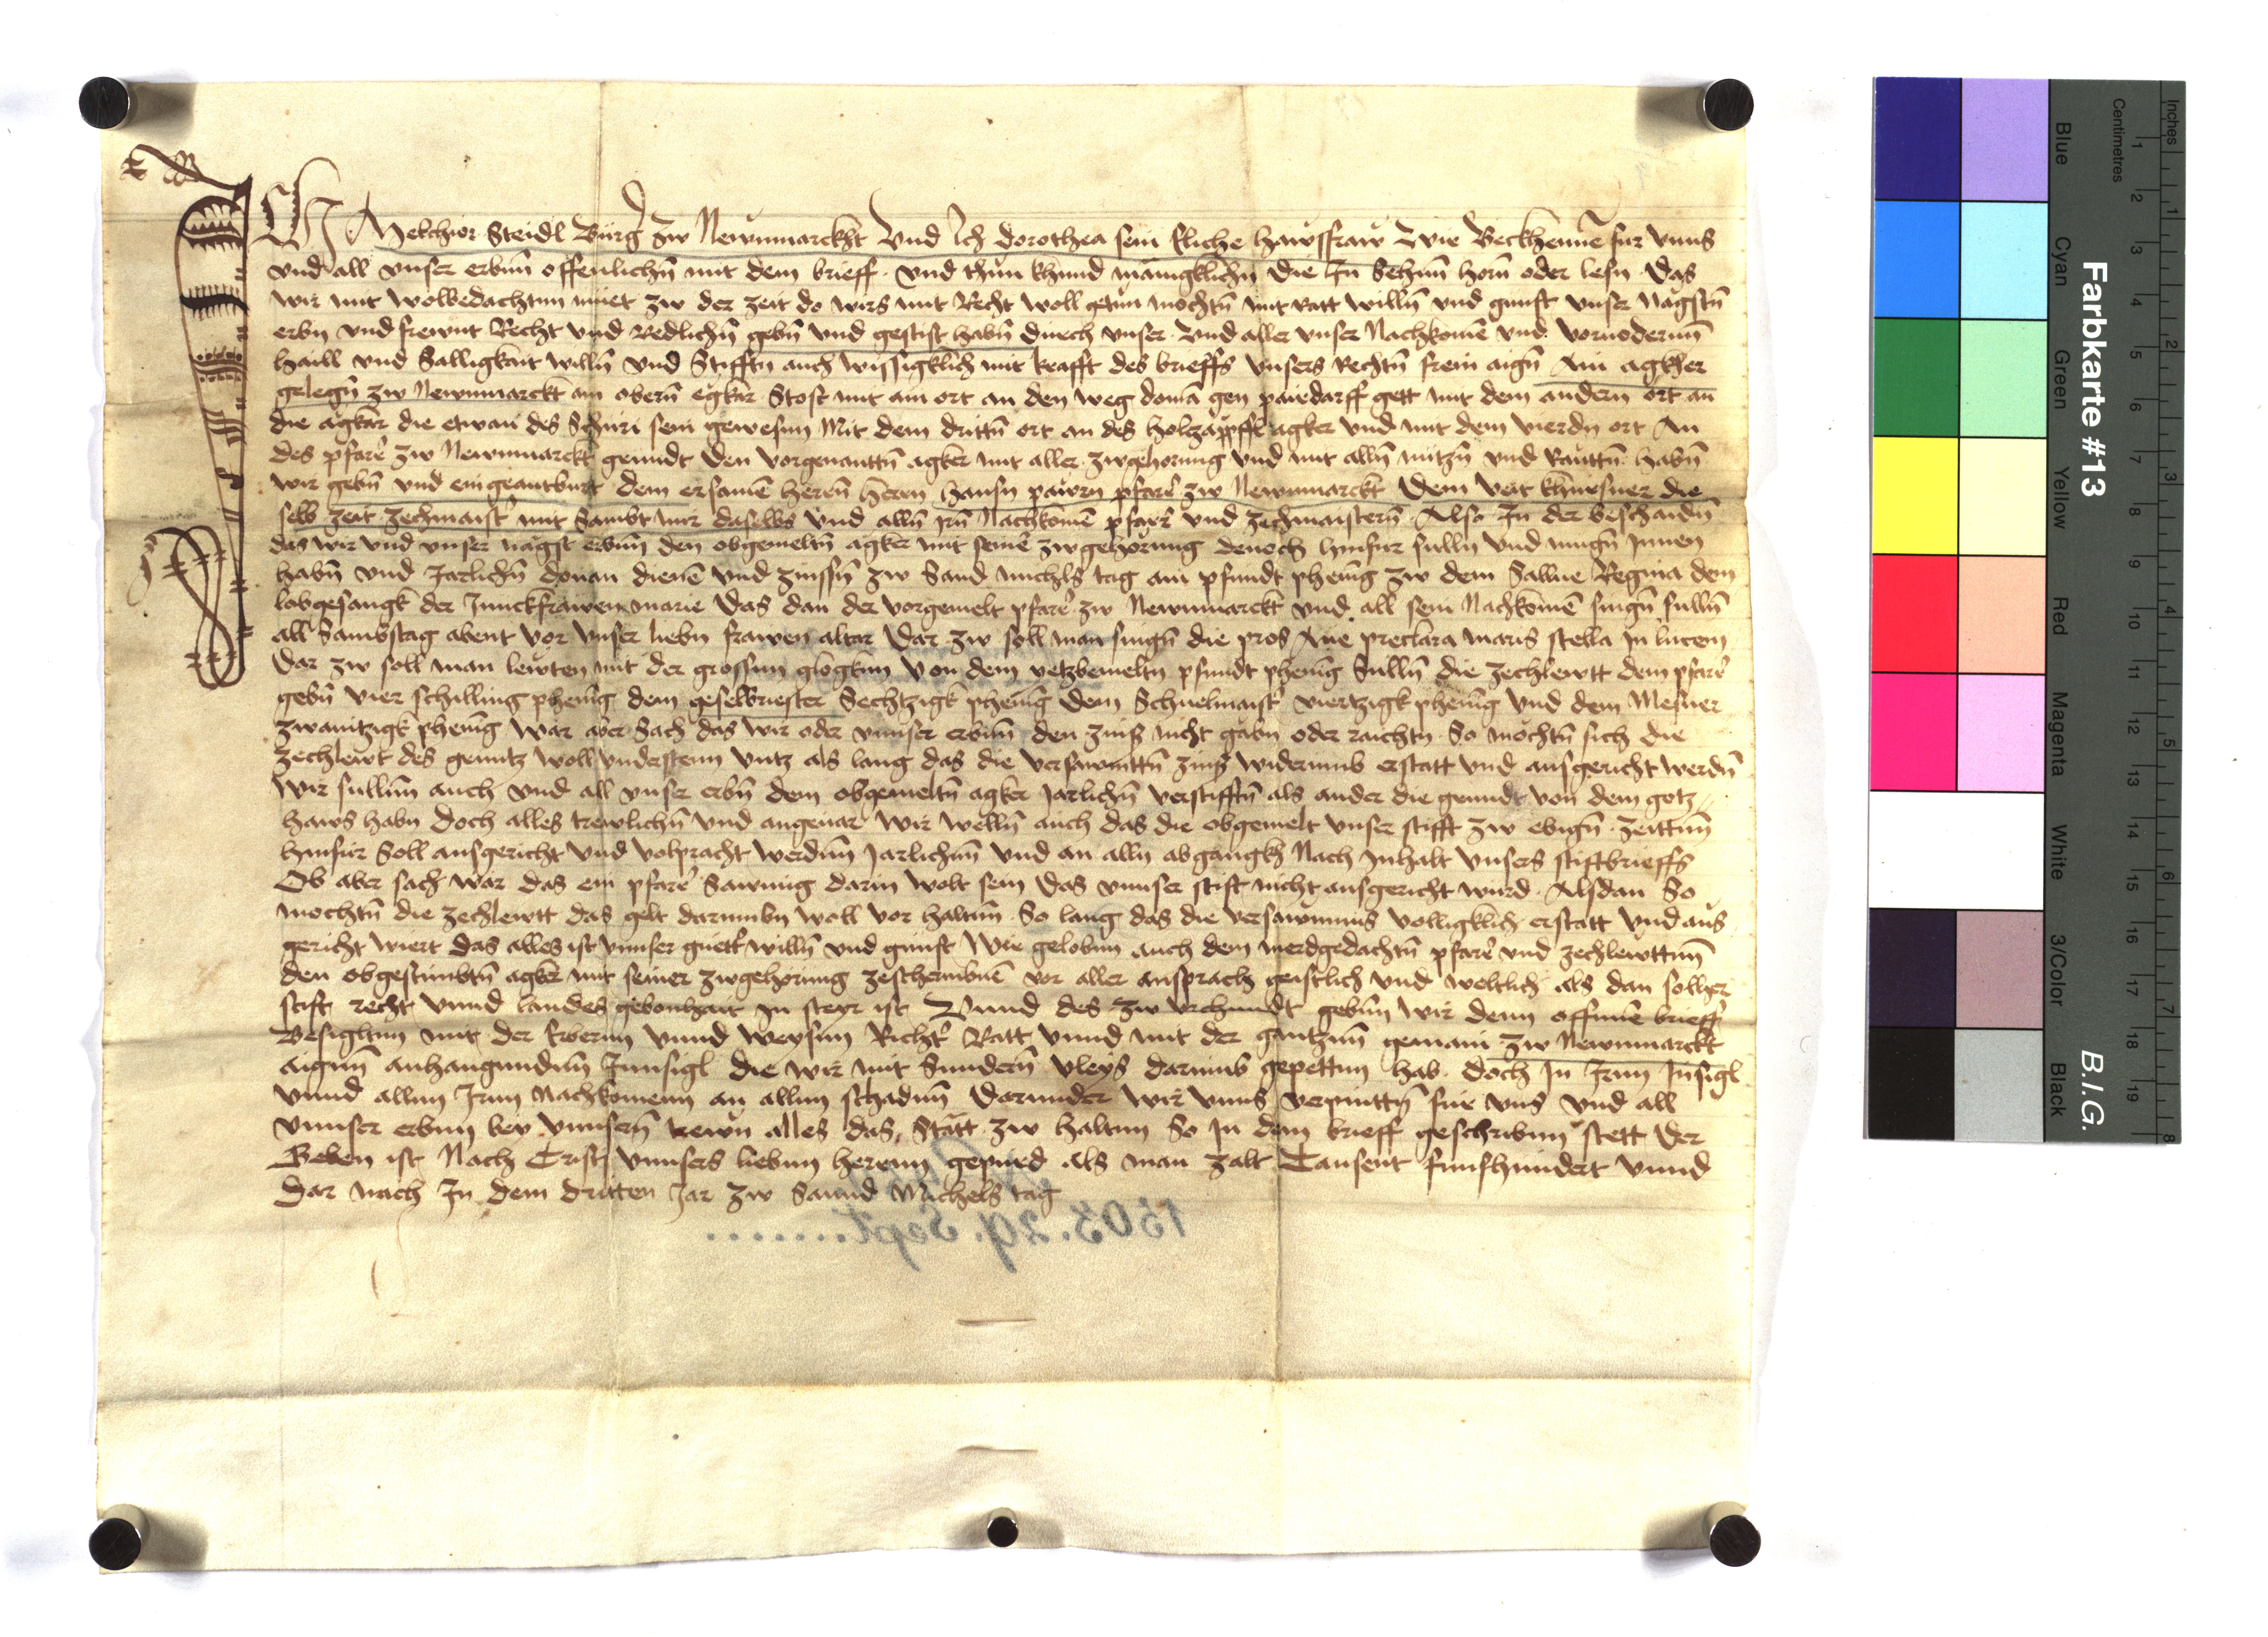 Ich Melchior Steidl Burger zw Newnmarckht Vnd Ich dorothea sein Eliche hawsfraw Wir Beckhennē fur Vnns
vnd all vnser erbnn offenlichn̄ mit dem brieff vnd thun khund mānigklichn̄ die In Sehnn horn̄ oder lesn̄ Das
wir mit wolbedachtnn muet zw der zeit do wirs mit Recht woll getun mochtn̄ mit ratt willn̄ vnd gunst vnser nagstn̄
erbn vnd frewnt Recht vnd Redlichn̄ gebn̄ vnd gestift habn̄ durch vnser vnd aller vnser Nachkomē vnd vorvoderunn
haill vnd Salligkait willn̄ vnd Stifftn auch wissigklich mit krafft des brieffs Vnsers Rechtn̄ frein aign̄ Ain agkher
gelegn̄ zw Newnmarckt am obern̄ egkar Stost mit am ort an den weg domā gen pairdarff gett mit dem andern ort an
die agkar die etwan des Schuri sein gewesnn Mit dem drittn̄ ort an des holtzappffl agker vnd mit dem vierdn ort An
des pfarer zw Newnmarckt grundt Den vorgenanttn̄ agker mit aller zwgehorung vnd mit alln̄ nutzn̄ vnd Rauttn̄ habn̄
wir gebn̄ vnd eingeantburt dem ersamē herrn̄ herrn hansn pawrn pfarer zw Newnmarckt Dem veit khursner die
selb zeit zechmaister mit Sambt mir daselbs vnd alln̄ jrn̄ Nachkomē pfarer vnd zechmaistern̄ Also In der beschaidn̄
das wir vnd vnser nagst erbnn den obgemeltn̄ agker mit seinē zwgehorung denoch hynfur sulln vnd mugn̄ Innen
habn̄ vnd Jarlichn̄ douan dienē vnd zinssn̄ zw Sand michls tag ain pfundt phenig zw dem Sallue Regina dem
lobgesangk der Junckfrawen marie Das dan der vorgemelt pfarer zw Newnmarckt vnd all sein Nachkomē singn̄ sulln̄
all Sambstag abent vor vnser liebn frawen altar Dar zw soll man singn̄ die pros Aue preclara maris stella in lucem
Dar zw soll man lewten mit der grossnn glogknn Von dem yetzbemeltn pfundt phenig Sulln̄ die zechlewtt dem pfarer
gebn̄ vier schilling phenig dem geselbriester Sechtzigk phenig Dem Schuelmaister viertzigk phenig vnd dem Mesner
zwaintzigk phenig War aber Sach das wir oder vnnser erbnn den zins nicht gabn oder raichtn So mochtn̄ sich die
zechlewt des gruntz woll vnderstenn vntz als lang das die versawmttn̄ zins widerumb erstatt vnd ausgericht werdn̄
Wir sullnn auch vnd all vnser erbn̄ dem obgemeltn̄ agker Jarlichn̄ verstifftn̄ als ander die grundt von dem gotz
haws habn Doch alles trewlichn̄ vnd angeuar Wir welln̄ auch das die obgemelt vnser stifft zw ebign̄ zeittnn
hinfur Soll ausgericht vnd volpracht werdnn Jarlichnn vnd an alln abgangkh Nach Inhalt vnsers stiftbrieffs
Ob aber sach war das ein pfarer Sawmig darin wolt sein Das vnnser stift nicht ausgericht wurd Alsdan So
mochtn̄ die zechlewtt das gelt darumbn woll vor haltnn So lang das die versawmnus volligklich erstatt vnd aus
gericht wiert Das alles ist vnnser guetter willn̄ vnd gunst Wir gelobnn auch dem merdgedachtn̄ pfarer vnd zechlewttnn
den obgestimbtn̄ agker mit seiner zwgehorung zeschermbnē vor aller ansprach geistlich vnd weltlich als dan sollher
stift recht vnnd landes gebonhait In steyr ist Vnnd des zw vrchundt gebnn wir denn offnnē brieff
Besigltnn mit der Erbernn vnnd weysnn Richter Ratt vnnd mit der gantznn gemain zw Newnmarckt
aignn anhangundnn Innsigl die wir mit Sundern̄ vleys darumb gepettnn hab doch In Irnn Insigl
vnnd allnn Irnn Nachkomenn an allnn schadnn Darunder wir vnns verpinttn̄ fur vns vnd all
vnnser erbnn bey vnnsern̄ trewn alles das Statt zw haltnn So In dem brieff geschribnn stett Der
Geben ist Nach Cristj vnnsers liebnn herrnn gepurd Als man zalt Tausent funfhundert vnnd
Dar nach In dem dritten Jar zw Sannd Michels tag
1503. 29. Sept.........
Farbkarte #13
B.I.G.
Inches
Centimetres
1 2 3 4 5 6 7 8 9 10 11 12 13 14 15 16 17 18 19
1 2 3 4 5 6 7 8
Blue
Cyan
Green
Yellow
Red
Magenta
White
3/Color
Black